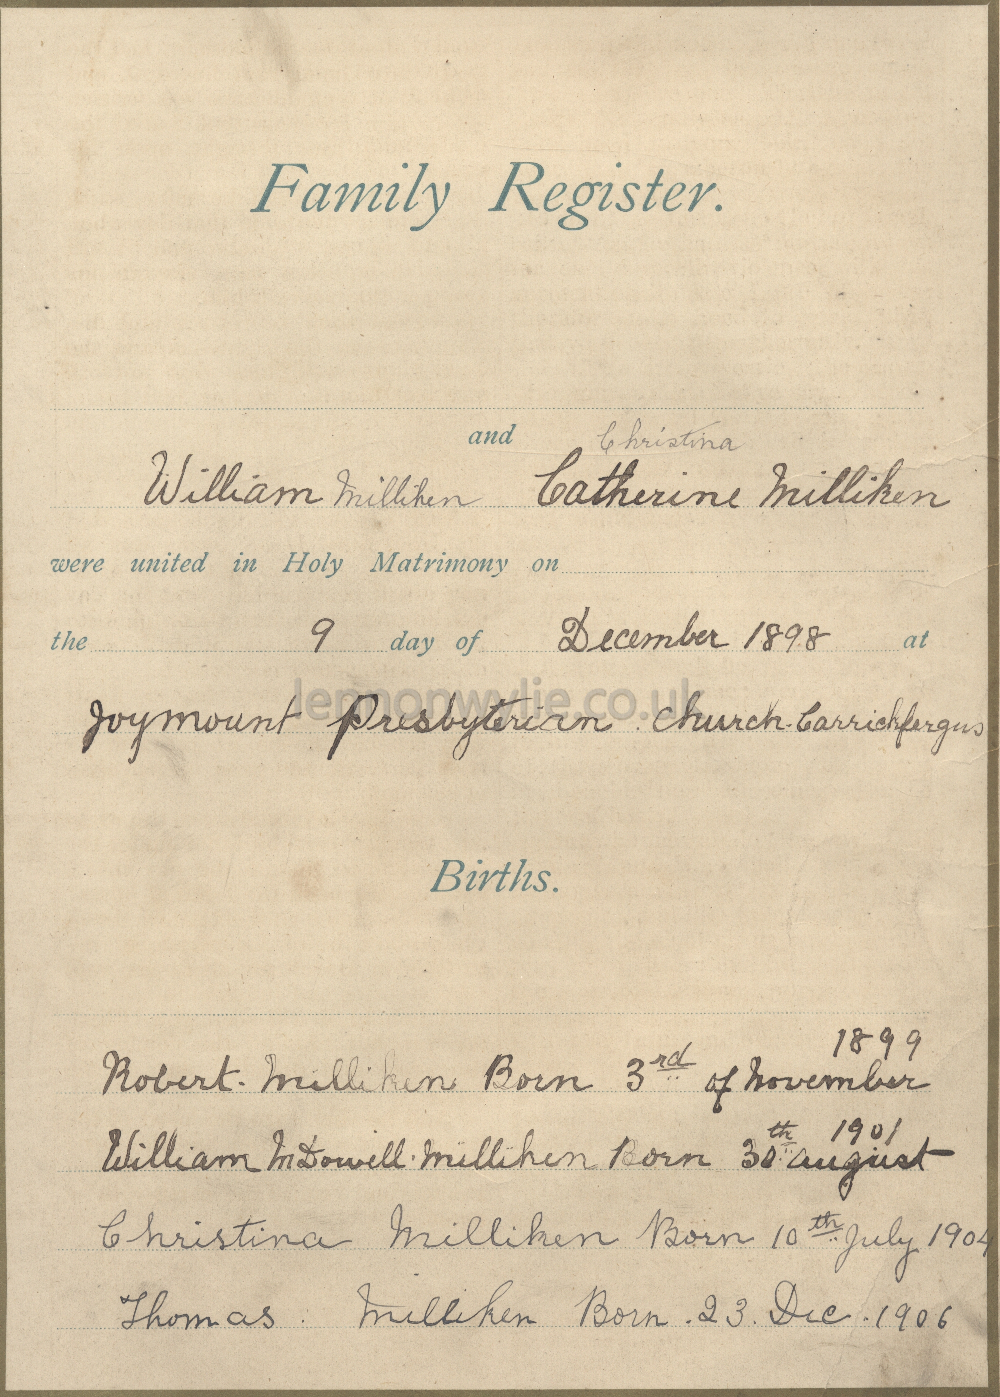 Family Register.
and Christina
William Milliken Catherine Milliken
were united in Holy Matrimony on
the 9 day of December 1898 at
lennonwylie.co.uk
Joymount Presbyterian Church Carrickfergus
Births.
1899
Robert. Milliken Born 3rd of November
1901
William McDowell Milliken Born 30th august
Christina Milliken Born 10th July 1904
Thomas. Milliken Born. 23. Dec. 1906